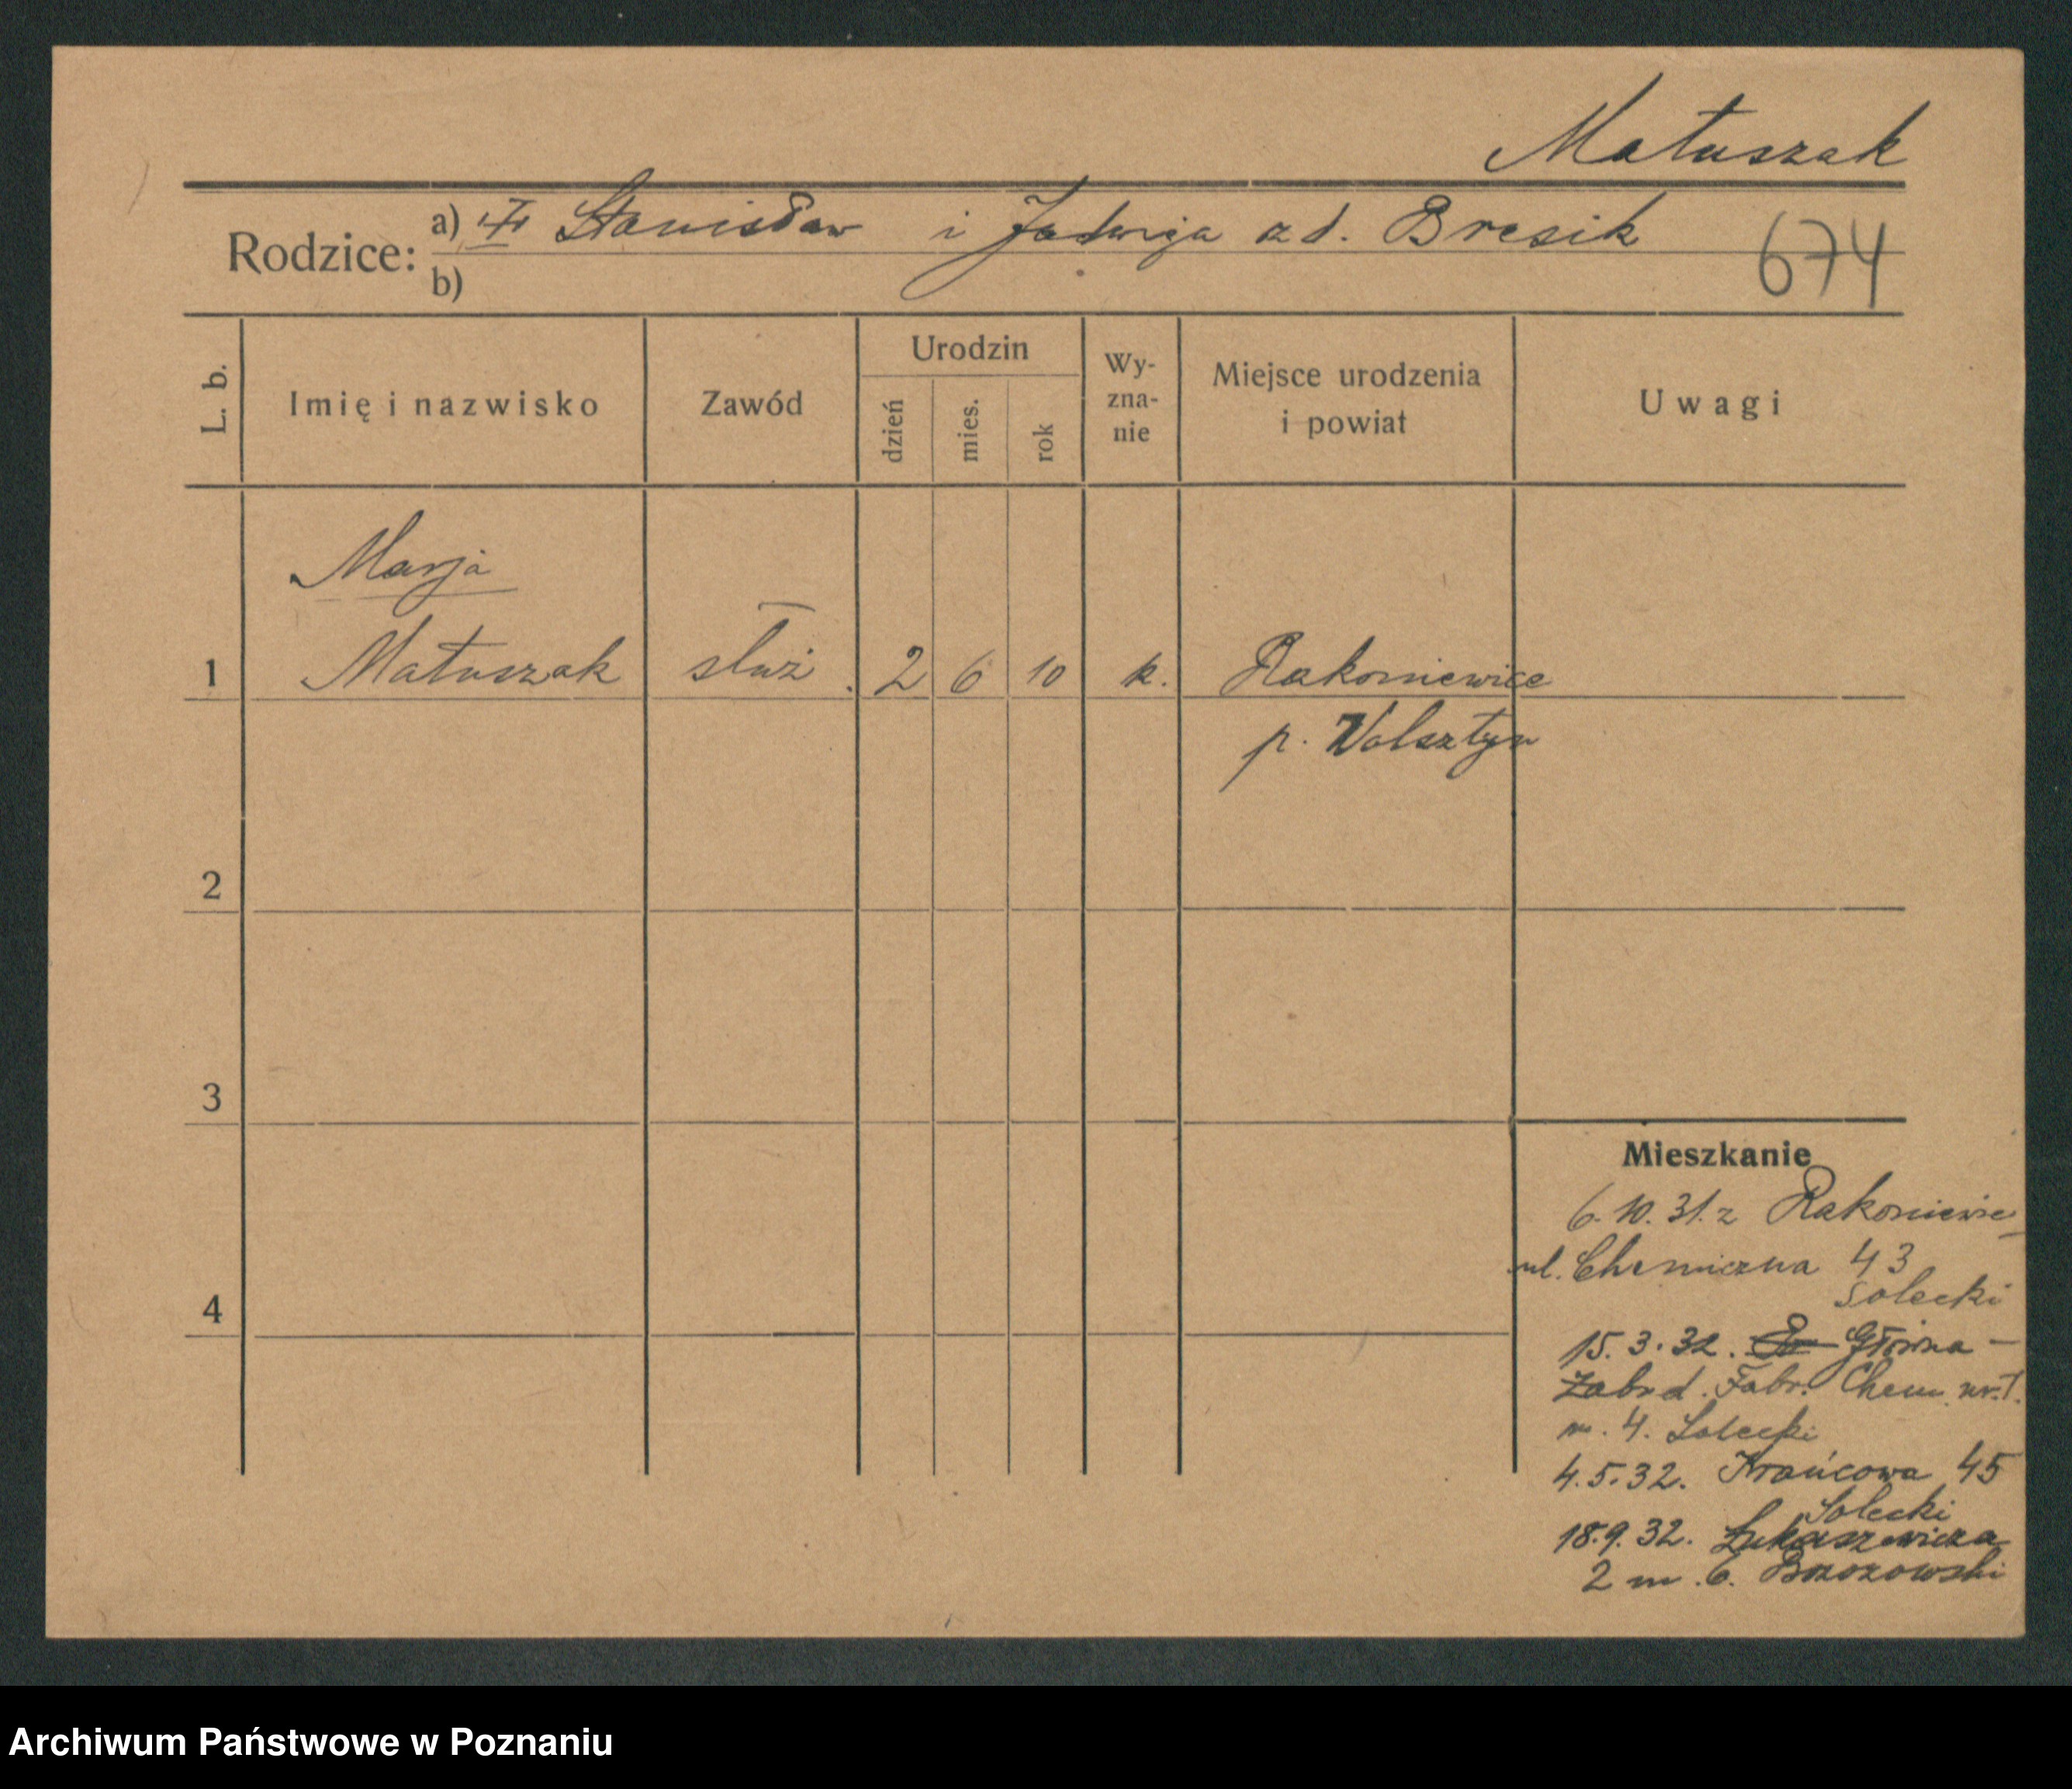 Matuszak
Rodzice: a) Stanisław i Jadwiga zd. Bresik
b)
674
L. b.
Imię i nazwisko
Zawód
Urodzin
dzień
mies.
rok
Wy-
zna-
nie
Miejsce urodzenia
i powiat
Uwagi
Marja
1 Matuszak służ. 2 6 10 k. Rakoniewice
p. Wolsztyn
2
3
4
Mieszkanie
6.10.31. z Rakoniewic
ul. Chemiczna 43
Solecki
15.3.32. Główna –
Fabr. Chem. nr. 1.
m. 4. Solecki
4.5.32. Krańcowa 45
Solecki
18.9.32. Łukaszewicza
2 m. 6. Brzozowski
Archiwum Państwowe w Poznaniu